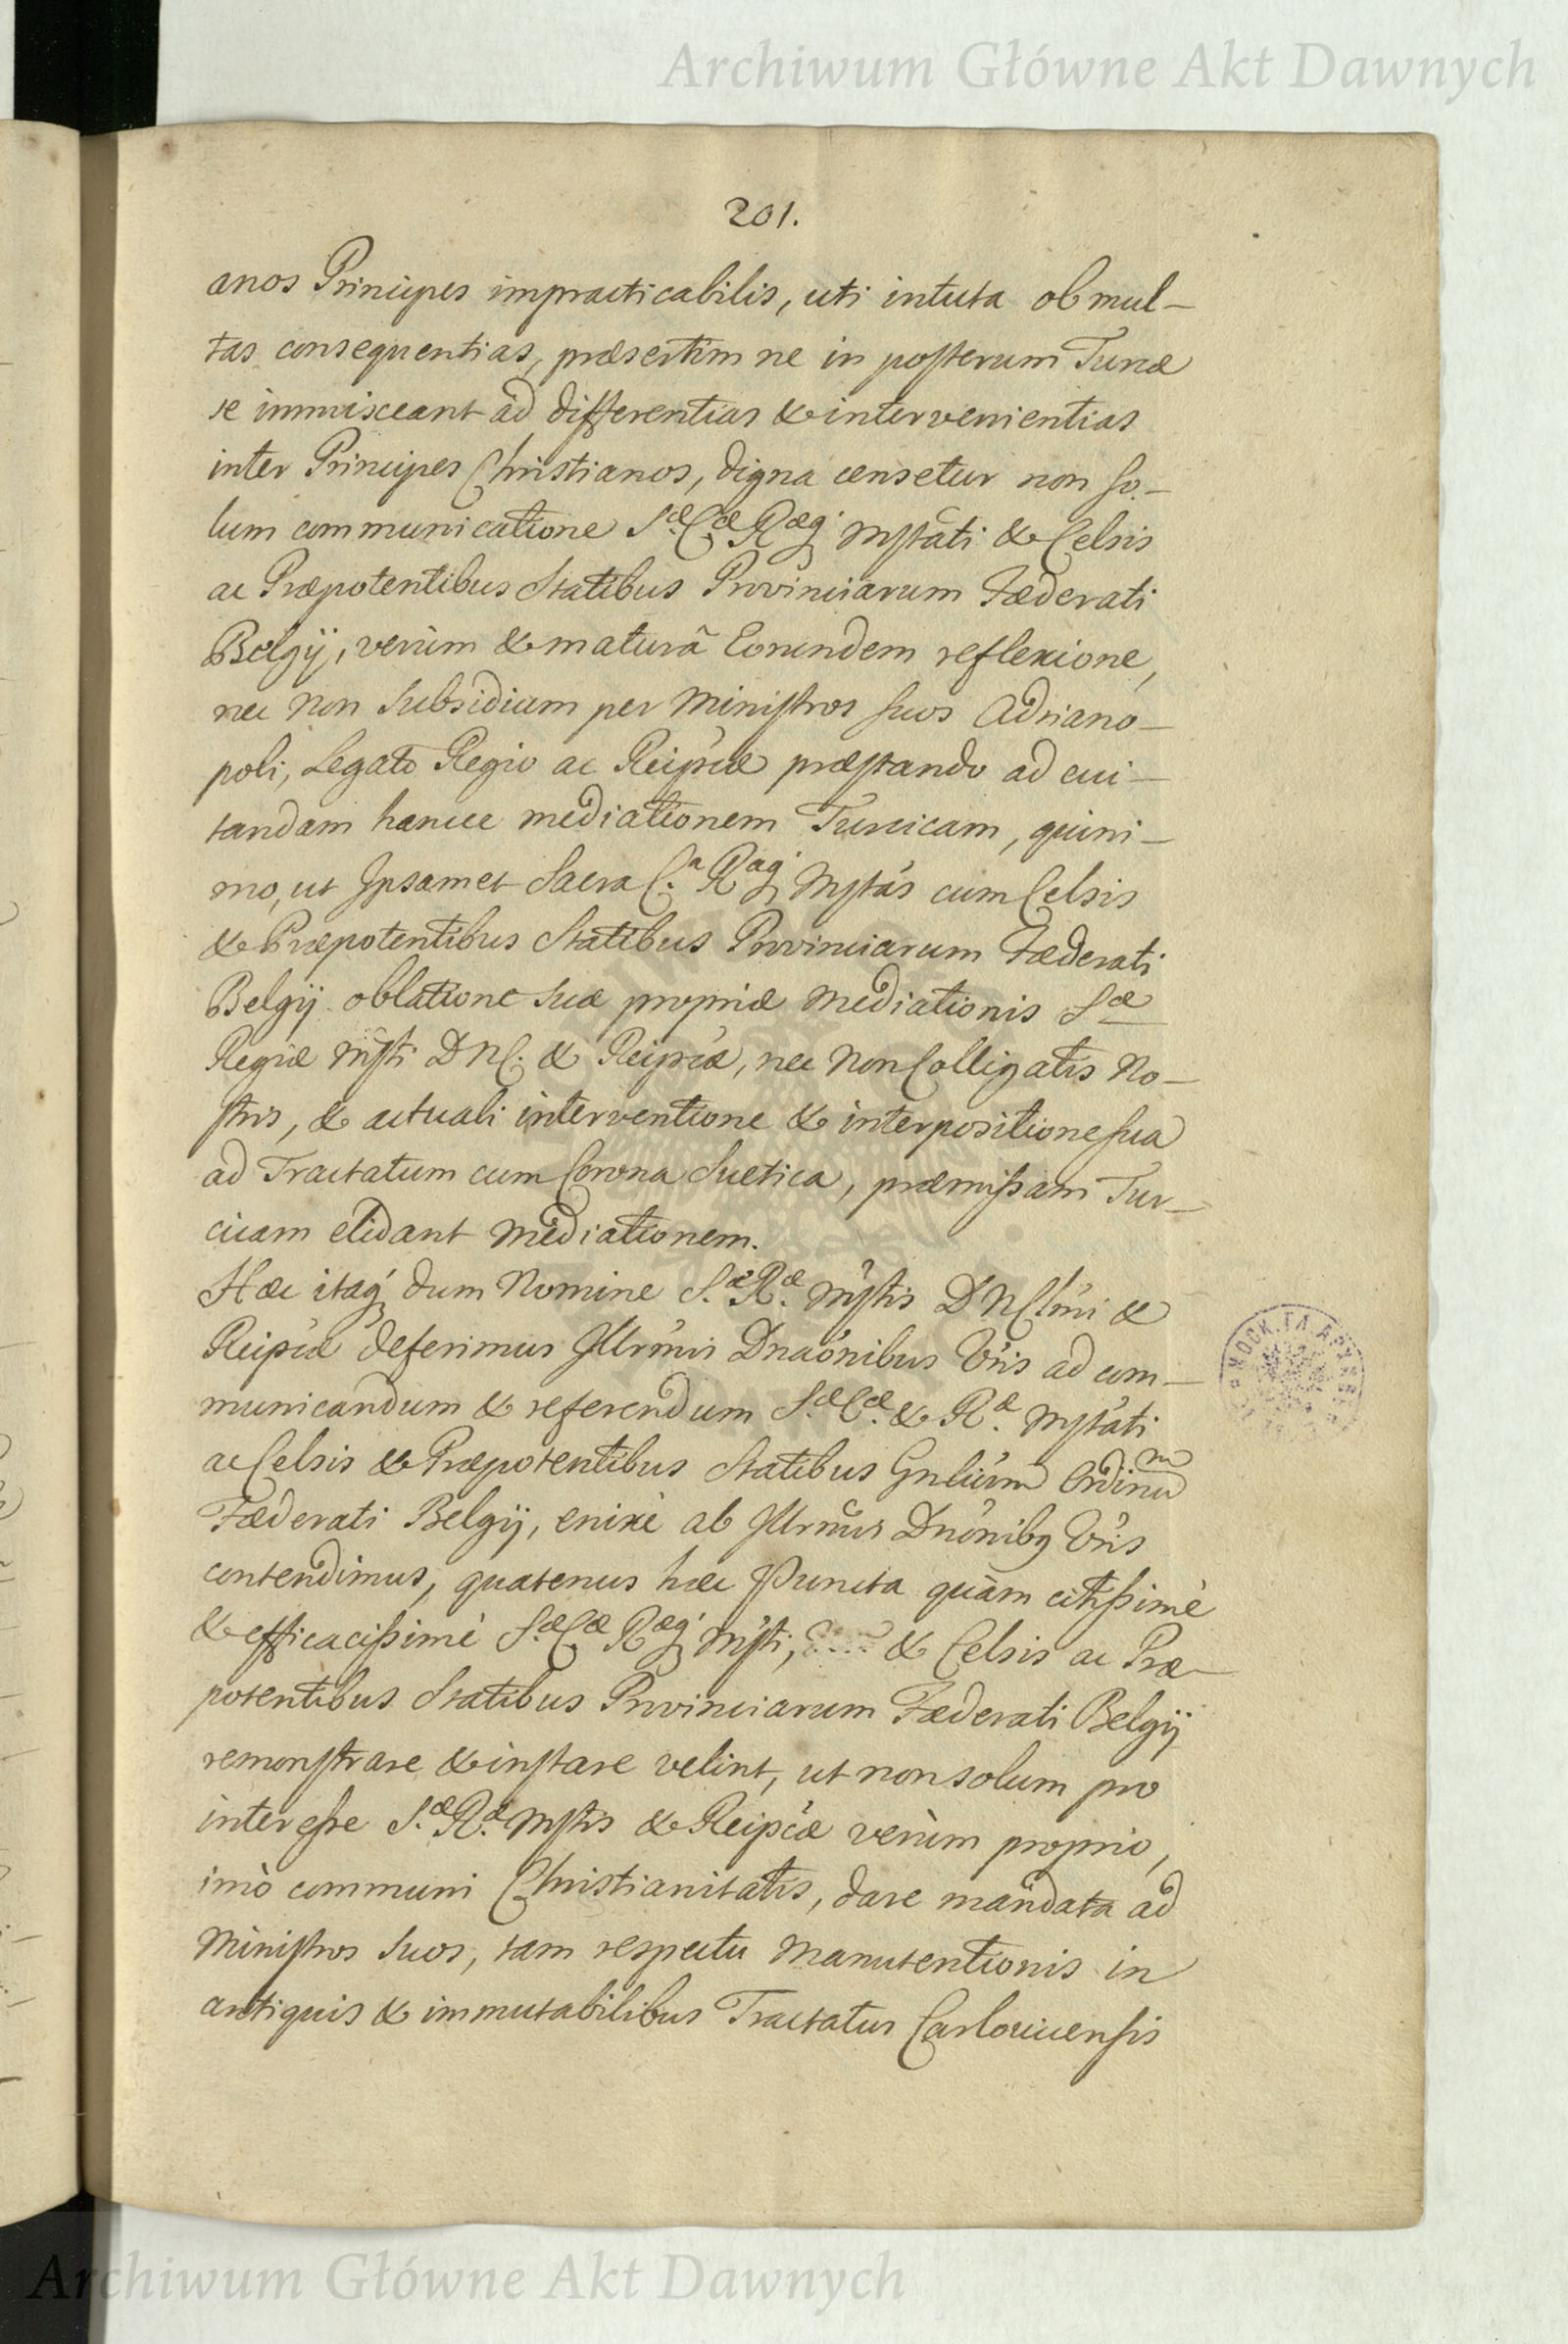 Archiwum Główne Akt Dawnych
201.
anos Principes impracticabilis, uti intuta ob mul-
tas consequentias, præsertim ne in posterum Turcæ
se immisceant ad differentias & intervenientias
inter Principes Christianos, digna censetur non so-
lum communicatione S.æ C.æ Ræq; Mstati & Celsis
ac Præpotentibus Statibus Provinciarum Fæderati
Belgÿ, verùm & maturâ Eorundem reflexione,
nec non subsidiam per Ministros suos Adriano-
poli, Legato Regio ac Reipcæ præstando ad evi-
tandam hancce mediationem Turcicam, quini-
mo, ut Ipsamet Sacra C.a Raq; Mstás cum Celsis
& Præpotentibus Statibus Provinciarum Fæderati
Belgÿ oblatione suæ propriæ Mediationis Sæ
Regiæ Msti D N C. & Reipcæ, nec non Colligatis No-
stris, & actuali interventione & interpositione sua
ad Tractatum cum Corona Suetica, præmissam Tur-
cicam elidant Mediationem.
Hæc itaq; dum Nomine S.æ R.æ Mstis D N Clmi &
Reipcæ deferimus Illrmis Dnaónibus Vris ad com-
municandum & referendum S.æ C.æ & R.æ Mstáti
ac Celsis & Præpotentibus Statibus Gnlium Ordinum
Fæderati Belgÿ, enixè ab Illrmis Dnónibq Vris
contendimus, quatenus hæc Puncta quàm citissimè
& efficacissimè S.æ C.æ Ræq; Msti, & Celsis ac Præ-
potentibus Statibus Provinciarum Fæderati Belgÿ
remonstrare & instare velint, ut non solum pro
interesse S.æ R.æ Mstis & Reipcæ verùm proprio,
imò communi Christianitatis, dare mandata ad
Ministros suos, tam respectu Manutentionis in
antiquis & immutabilibus Tractatus Carlovicensis
Archiwum Główne Akt Dawnych